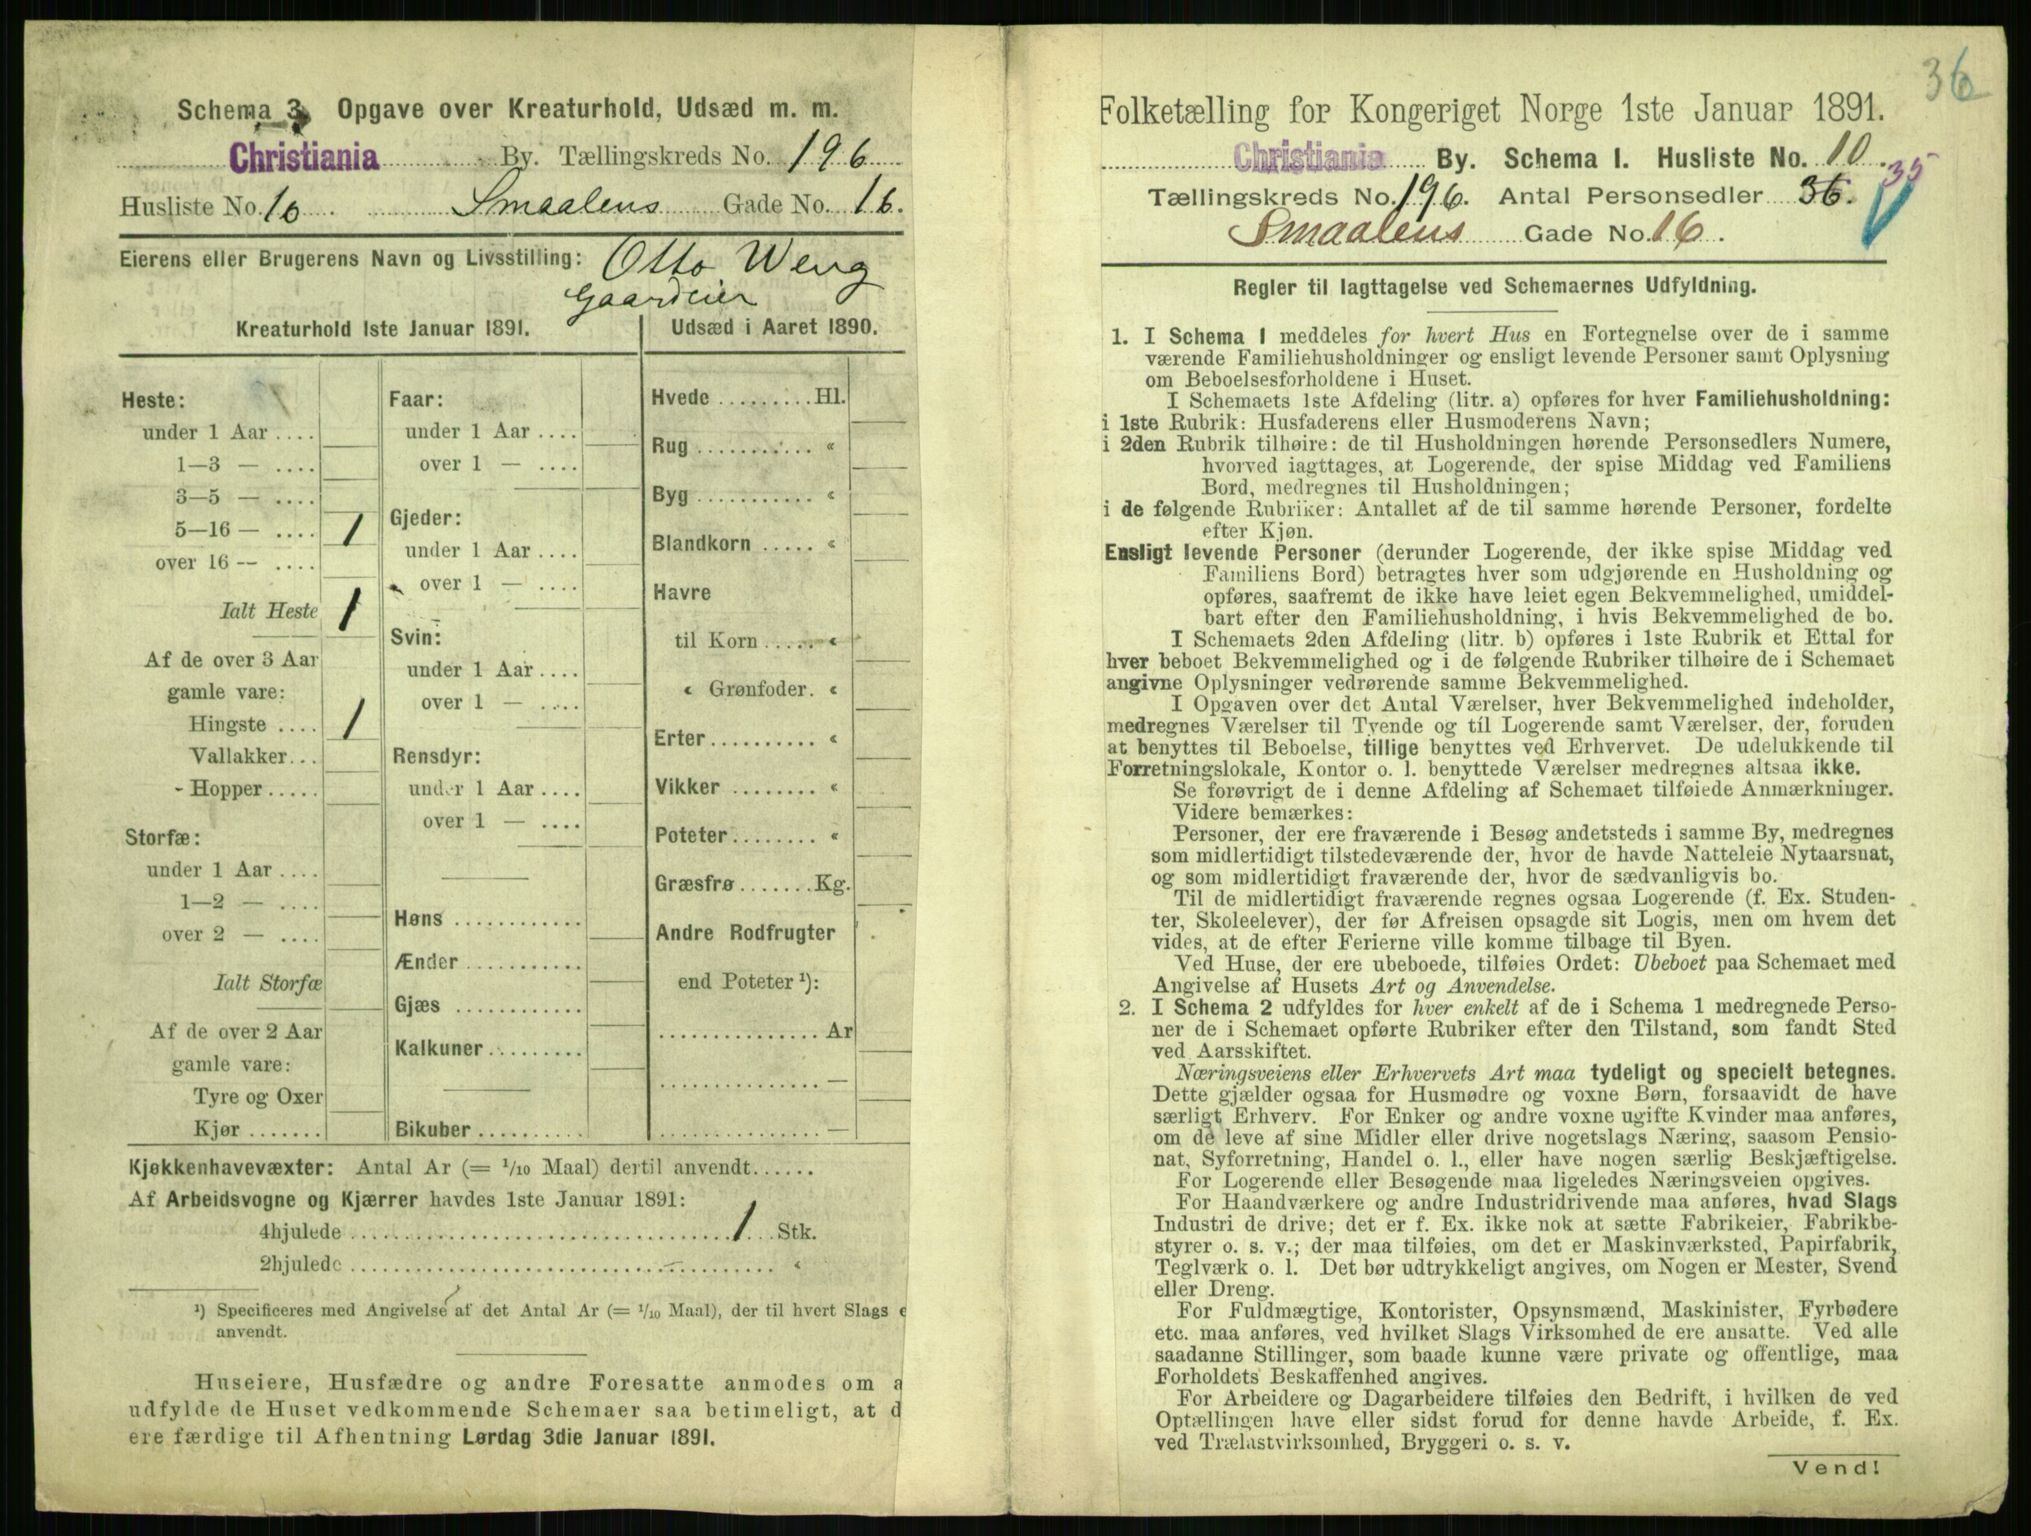 Schema 3. Opgave over Kreaturhold, Udsæd m. m.
Christiania By. Tællingskreds No. 196
Husliste No. 10 Smaalens Gade No. 16.
Eierens eller Brugerens Navn og Livsstilling: Otto Weng
Gaardeier
Kreaturhold 1ste Januar 1891.
Heste:
under 1 Aar ....
1—3 — ....
3—5 — ....
5—16 — .... 1
over 16 — ....
Ialt Heste 1
Af de over 3 Aar
gamle vare:
Hingste .... 1
Vallakker...
Hopper.....
Storfæ:
under 1 Aar ....
1—2 — ....
over 2 — ....
Ialt Storfæ
Af de over 2 Aar
gamle vare:
Tyre og Oxer
Kjør.......
Faar:
under 1 Aar ....
over 1 — ....
Gjeder:
under 1 Aar ....
over 1 — ....
Svin:
under 1 Aar ....
over 1 — ....
Rensdyr:
under 1 Aar ....
over 1 — ....
Høns ............
Ænder ...........
Gjæs ............
Kalkuner.........
Bikuber..........
Udsæd i Aaret 1890.
Hvede .........Hl.
Rug .......... «
Byg ........... «
Blandkorn ..... «
Havre
til Korn ..... «
« Grønfoder. «
Erter.......... «
Vikker ........ «
Poteter........ «
Græsfrø.......Kg.
Andre Rodfrugter
end Poteter ¹):
...............Ar
...............—
...............—
Kjøkkenhavevæxter: Antal Ar (= 1/10 Maal) dertil anvendt......
Af Arbeidsvogne og Kjærrer havdes 1ste Januar 1891:
4hjulede ........ 1 Stk.
2hjulede ........ «
¹) Specificeres med Angivelse af det Antal Ar (= 1/10 Maal), der til hvert Slags e
anvendt.
Huseiere, Husfædre og andre Foresatte anmodes om a
udfylde de Huset vedkommende Schemaer saa betimeligt, at d
ere færdige til Afhentning Lørdag 3die Januar 1891.
36
Folketælling for Kongeriget Norge 1ste Januar 1891.
Christiania By. Schema I. Husliste No. 10.
35
Tællingskreds No. 196. Antal Personsedler 36.
Smaalens Gade No. 16.
Regler til Iagttagelse ved Schemaernes Udfyldning.
1. I Schema 1 meddeles for hvert Hus en Fortegnelse over de i samme
værende Familiehusholdninger og ensligt levende Personer samt Oplysning
om Beboelsesforholdene i Huset.
I Schemaets 1ste Afdeling (litr. a) opføres for hver Familiehusholdning:
i 1ste Rubrik: Husfaderens eller Husmoderens Navn;
i 2den Rubrik tilhøire: de til Husholdningen hørende Personsedlers Numere,
hvorved iagttages, at Logerende, der spise Middag ved Familiens
Bord, medregnes til Husholdningen;
i de følgende Rubriker: Antallet af de til samme hørende Personer, fordelte
efter Kjøn.
Ensligt levende Personer (derunder Logerende, der ikke spise Middag ved
Familiens Bord) betragtes hver som udgjørende en Husholdning og
opføres, saafremt de ikke have leiet egen Bekvemmelighed, umiddel-
bart efter den Familiehusholdning, i hvis Bekvemmelighed de bo.
I Schemaets 2den Afdeling (litr. b) opføres i 1ste Rubrik et Ettal for
hver beboet Bekvemmelighed og i de følgende Rubriker tilhøire de i Schemaet
angivne Oplysninger vedrørende samme Bekvemmelighed.
I Opgaven over det Antal Værelser, hver Bekvemmelighed indeholder,
medregnes Værelser til Tyende og til Logerende samt Værelser, der, foruden
at benyttes til Beboelse, tillige benyttes ved Erhvervet. De udelukkende til
Forretningslokale, Kontor o. l. benyttede Værelser medregnes altsaa ikke.
Se forøvrigt de i denne Afdeling af Schemaet tilføiede Anmærkninger.
Videre bemærkes:
Personer, der ere fraværende i Besøg andetsteds i samme By, medregnes
som midlertidigt tilstedeværende der, hvor de havde Natteleie Nytaarsnat,
og som midlertidigt fraværende der, hvor de sædvanligvis bo.
Til de midlertidigt fraværende regnes ogsaa Logerende (f. Ex. Studen-
ter, Skoleelever), der før Afreisen opsagde sit Logis, men om hvem det
vides, at de efter Ferierne ville komme tilbage til Byen.
Ved Huse, der ere ubeboede, tilføies Ordet: Ubeboet paa Schemaet med
Angivelse af Husets Art og Anvendelse.
2. I Schema 2 udfyldes for hver enkelt af de i Schema 1 medregnede Perso-
ner de i Schemaet opførte Rubriker efter den Tilstand, som fandt Sted
ved Aarsskiftet.
Næringsveiens eller Erhvervets Art maa tydeligt og specielt betegnes.
Dette gjælder ogsaa for Husmødre og voxne Børn, forsaavidt de have
særligt Erhverv. For Enker og andre voxne ugifte Kvinder maa anføres,
om de leve af sine Midler eller drive nogetslags Næring, saasom Pensio-
nat, Syforretning, Handel o. l., eller have nogen særlig Beskjæftigelse.
For Logerende eller Besøgende maa ligeledes Næringsveien opgives.
For Haandværkere og andre Industridrivende maa anføres, hvad Slags
Industri de drive; det er f. Ex. ikke nok at sætte Fabrikeier, Fabrikbe-
styrer o. s. v.; der maa tilføies, om det er Maskinværksted, Papirfabrik,
Teglværk o. l. Det bør udtrykkeligt angives, om Nogen er Mester, Svend
eller Dreng.
For Fuldmægtige, Kontorister, Opsynsmænd, Maskinister, Fyrbødere
etc. maa anføres, ved hvilket Slags Virksomhed de ere ansatte. Ved alle
saadanne Stillinger, som baade kunne være private og offentlige, maa
Forholdets Beskaffenhed angives.
For Arbeidere og Dagarbeidere tilføies den Bedrift, i hvilken de ved
Optællingen have eller sidst forud for denne havde Arbeide, f. Ex.
ved Trælastvirksomhed, Bryggeri o. s. v.
Vend!